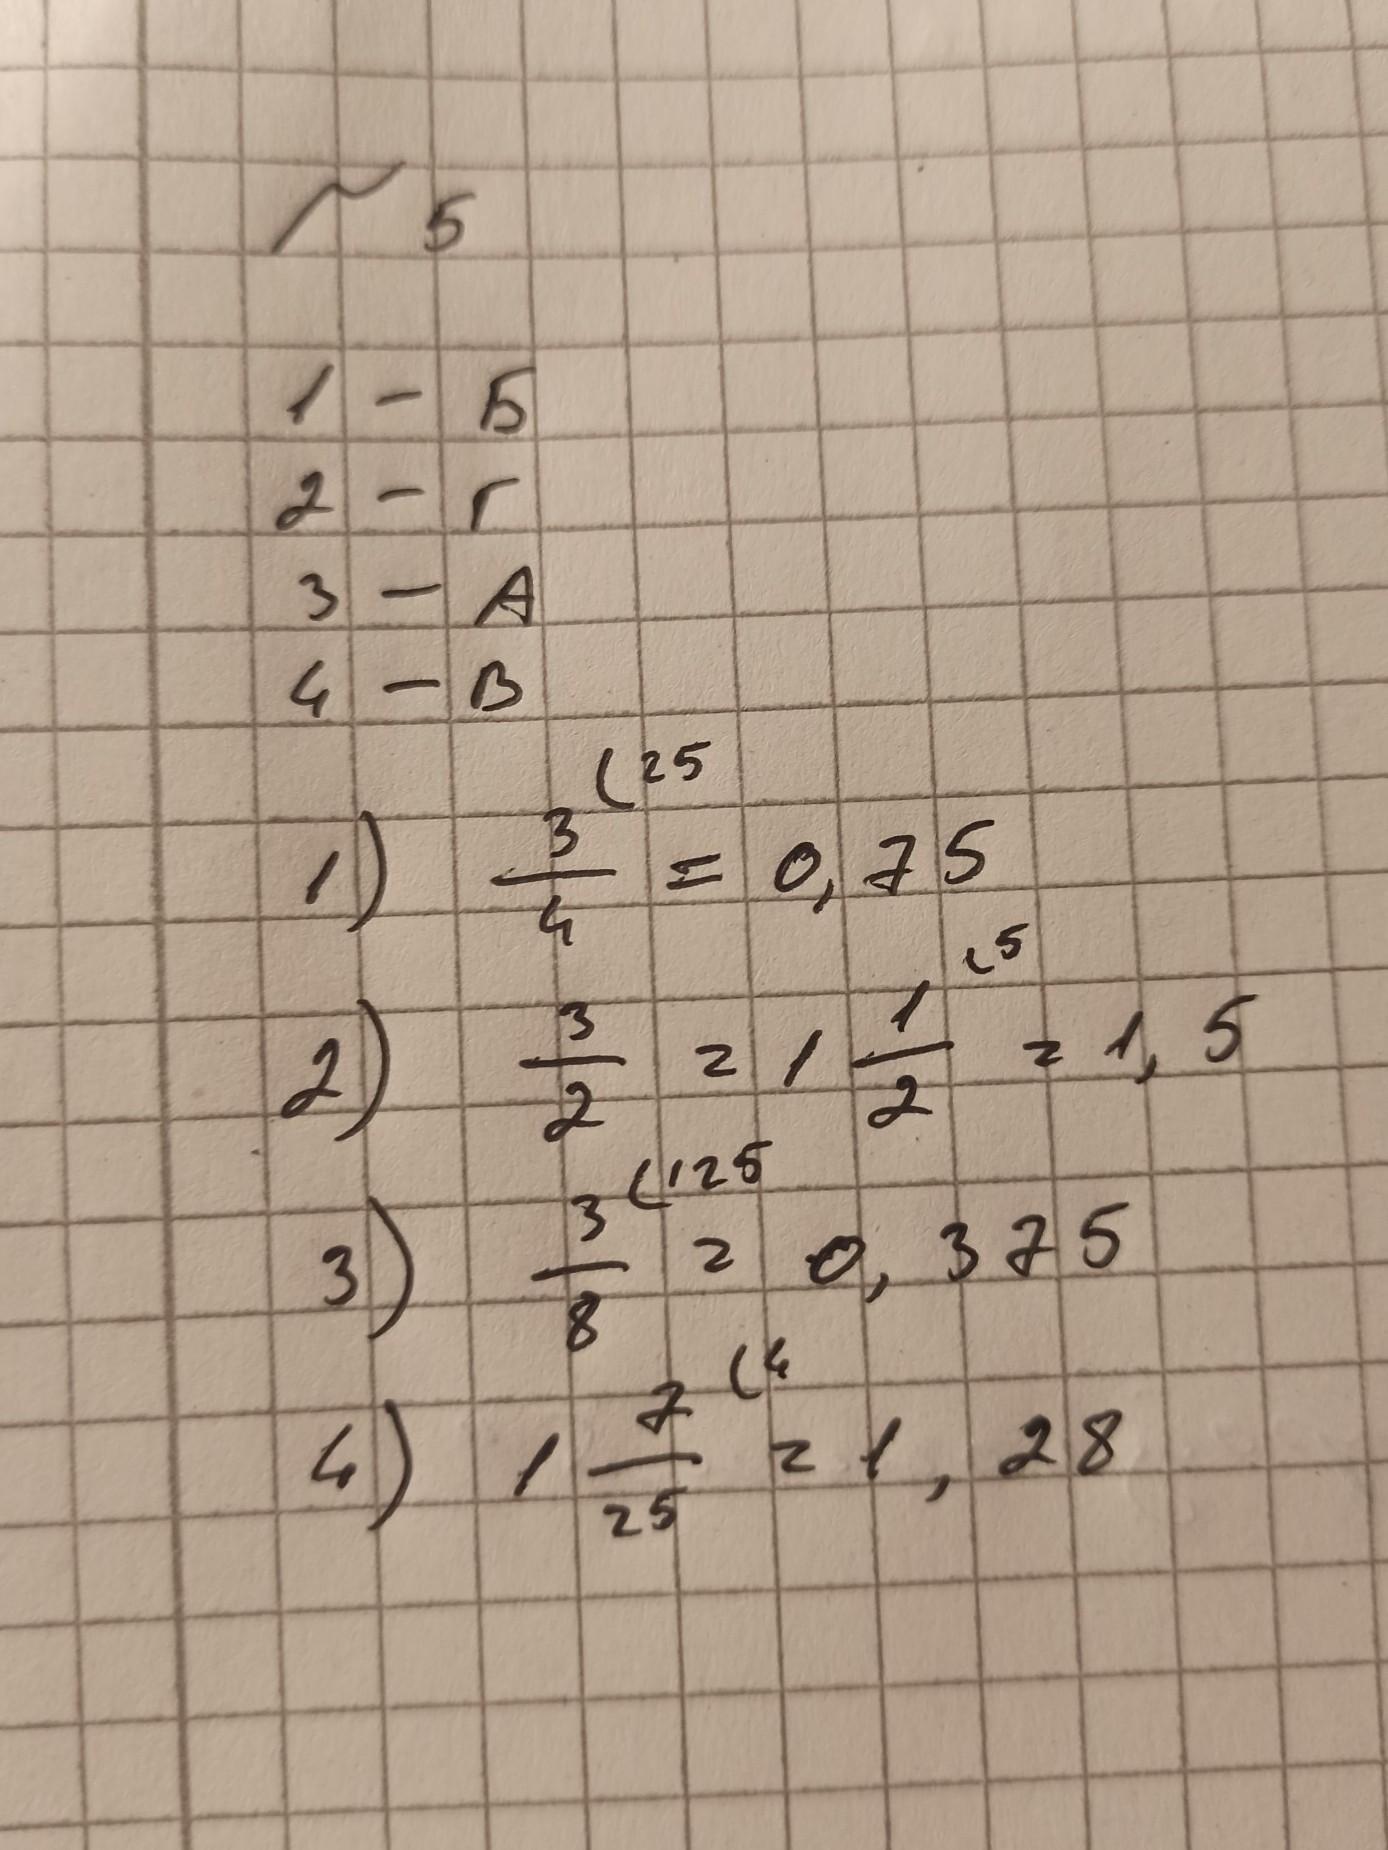 № 5
1 – Б
2 – Г
3 – А
4 – В
1) 3/4 (25 = 0,75
2) 3/2 = 1 1/2 (5 = 1,5
3) 3/8 (125 = 0,375
4) 1 7/25 (4 = 1,28